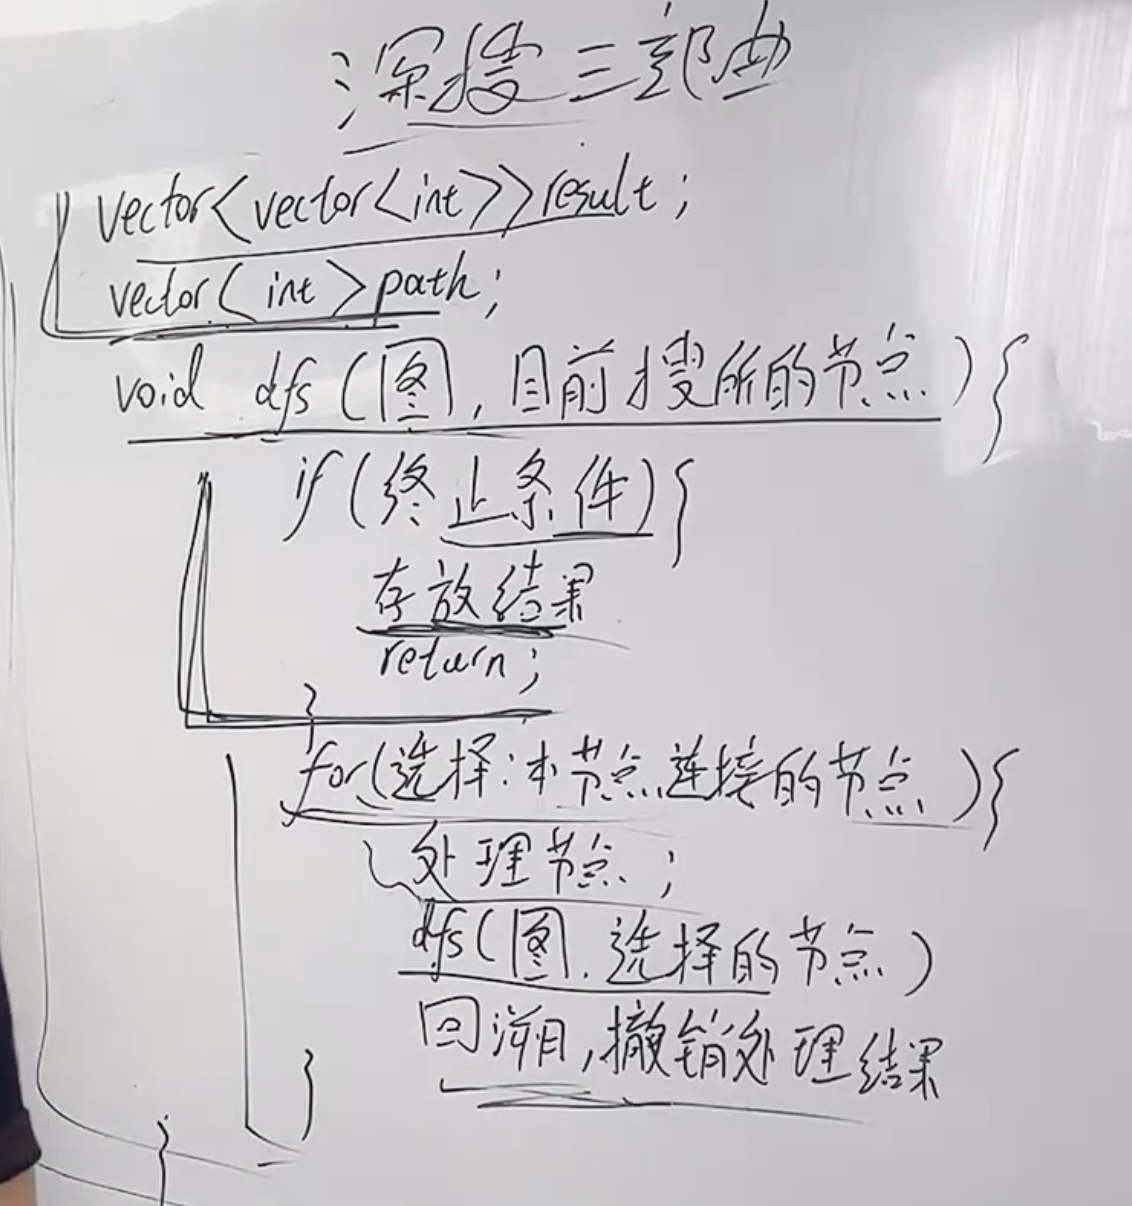 深搜三部曲
vector<vector<int>>result;
vector<int>path;
void dfs(图,目前搜所的节点){
if(终止条件){
存放结果
return;
}
for(选择:本节点连接的节点){
处理节点;
dfs(图.选择的节点)
回溯,撤销处理结果
}
}